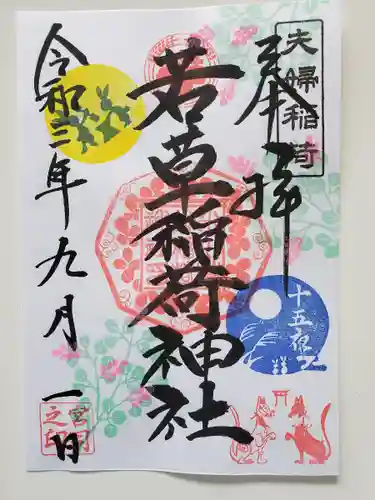 夫婦稲荷
奉拝
若草稲荷神社
十五夜
令和三年九月一日